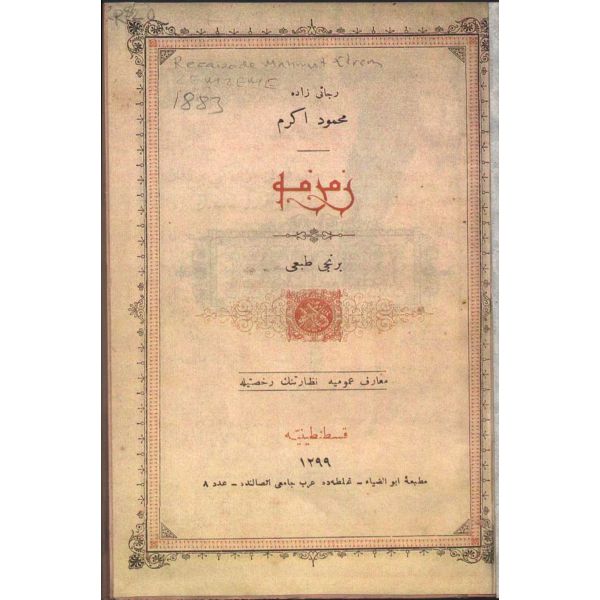 Recaizade Mahmut Ekrem
ZEMZEME
1883
رجائی زاده
محمود اکرم
زمزمه
برنجی طبعی
معارف عمومیه نظارتنك رخصتیله
قسطنطینیّه
١٢٩٩
مطبعهٔ ابو الضیاء – غلطه‌ده عرب جامعی اتصالنده – عدد ٨